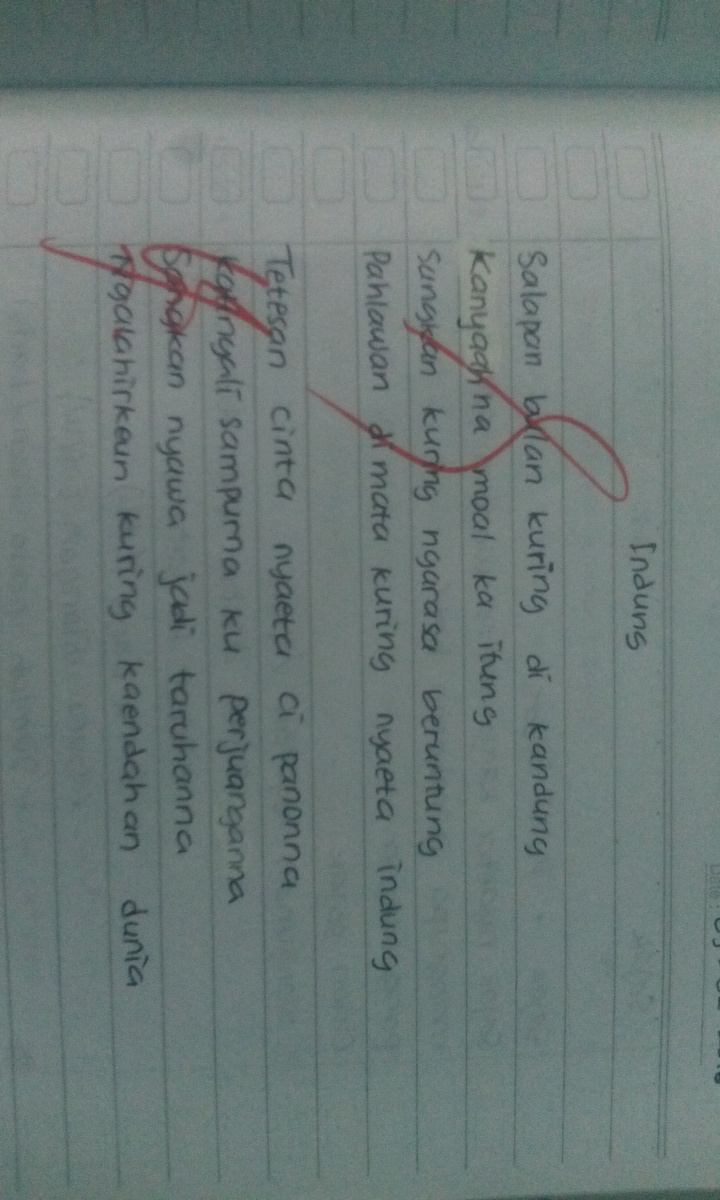 Indung
Salapan bulan kuring di kandung
Kanyaahna moal ka itung
Sangkan kuring ngarasa beruntung
Pahlawan di mata kuring nyaeta indung
Tetesan cinta nyaeta ci panonna
Katingali sampurna ku perjuanganna
Sangkan nyawa jadi taruhanna
Ngalahirkeun kuring kaendahan dunia